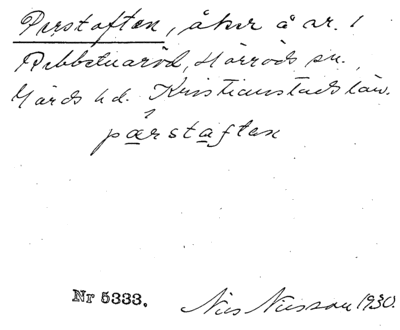 Perstoften, åker å nr. 1
Ribbetuaröd, Hörröds sn.,
Gärds hd. Kristianstads län.
pærstaften
Nr 5333.
Nils Nilsson 1930.